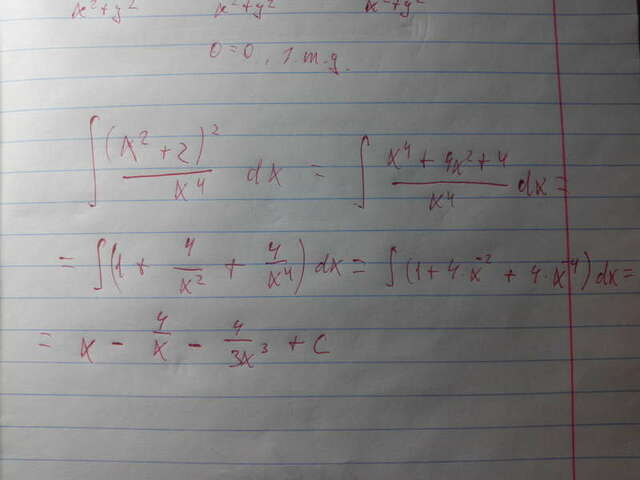 x²+y² x²+y² x²+y²
0=0,
∫ (x²+2)²/x⁴ dx = ∫ (x⁴+4x²+4)/x⁴ dx =
= ∫(1 + 4/x² + 4/x⁴) dx = ∫ (1+4·x⁻² + 4·x⁻⁴) dx =
= x - 4/x - 4/3x³ + C